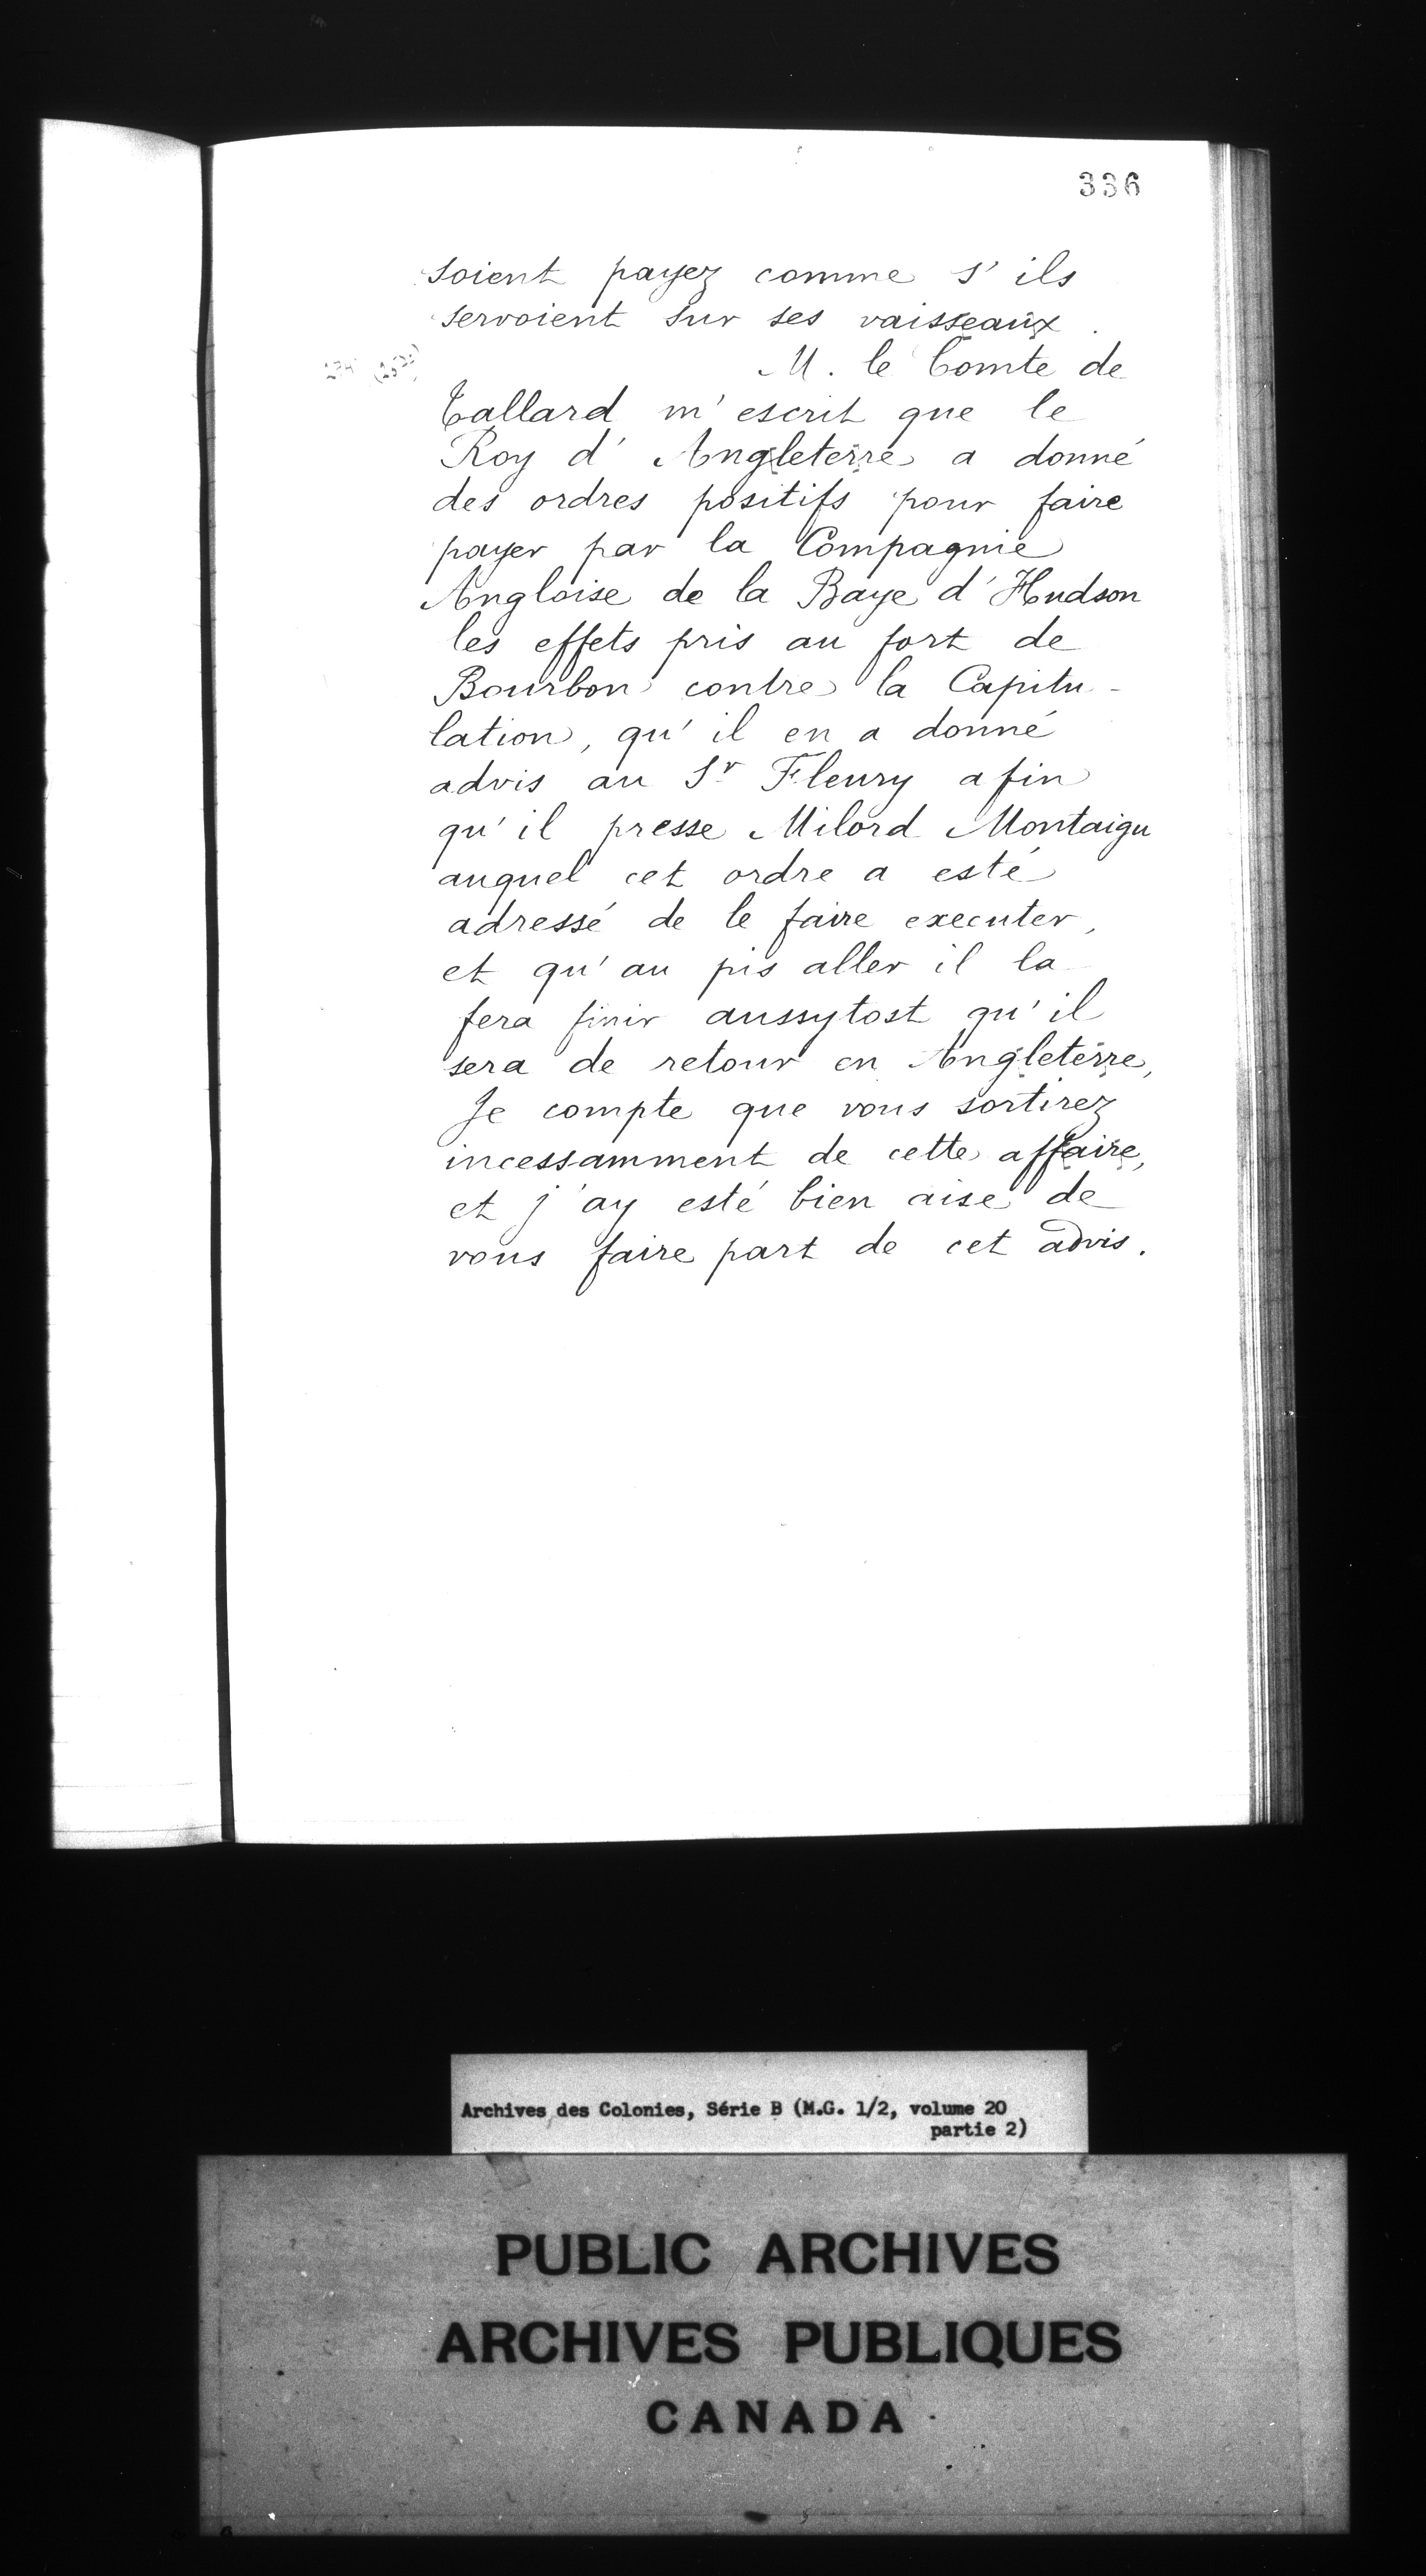 336
soient payez comme s' ils
servoient sur ses vaisseaux.
M. le Comte de
Tallard m' escrit que le
Roy d' Angleterre a donné
des ordres positifs pour faire
payer par la Compagnie
Angloise de la Baye d' Hudson
les effets pris au fort de
Bourbon contre la Capitu-
lation, qu' il en a donné
advis au Sr Fleury afin
qu' il presse Milord Montaigu
auquel cet ordre a esté
adressé de le faire executer,
et qu' au pis aller il la
fera finir aussytost qu' il
sera de retour en Angleterre,
Je compte que vous sortirez
incessamment de cette affaire,
et j' ay esté bien aise de
vous faire part de cet advis.
Archives des Colonies, Série B (M.G. 1/2, volume 20
partie 2)
PUBLIC ARCHIVES
ARCHIVES PUBLIQUES
CANADA